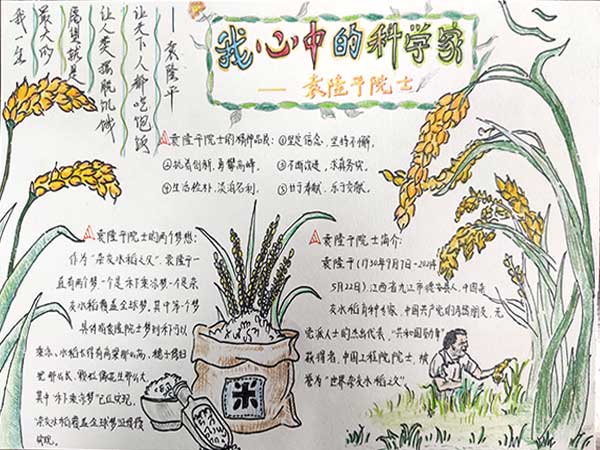 我心中的科学家
——袁隆平院士
我一生
最大的
愿望就是
让人类摆脱饥饿
让天下人都吃饱饭
——袁隆平
袁隆平院士的精神品质：①坚定信念，坚持不懈。
②执着创新，勇攀高峰。 ③不断改进，求真务实。
④生活俭朴，淡泊名利。 ⑤甘于奉献，乐于贡献。
袁隆平院士的两个梦想：
作为“杂交水稻之父”，袁隆平一
直有两个梦，一个是禾下乘凉梦，一个是杂
交水稻覆盖全球梦。其中第一个梦
具体指袁隆院士梦到禾下可以
乘凉，水稻长得有高粱那么高，穗子有扫
把那么长，颗粒像花生那么大，
其中“禾下乘凉梦”已实现，
杂交水稻覆盖全球梦正慢慢
实现。
袁隆平院士简介：
袁隆平(1930年9月7日-2021年
5月22日)，江西省九江市德安县人，中国杂
交水稻育种专家，中国共产党的亲密朋友，无
党派人士的杰出代表，“共和国勋章”
获得者，中国工程院院士，被
誉为“世界杂交水稻之父”。
米